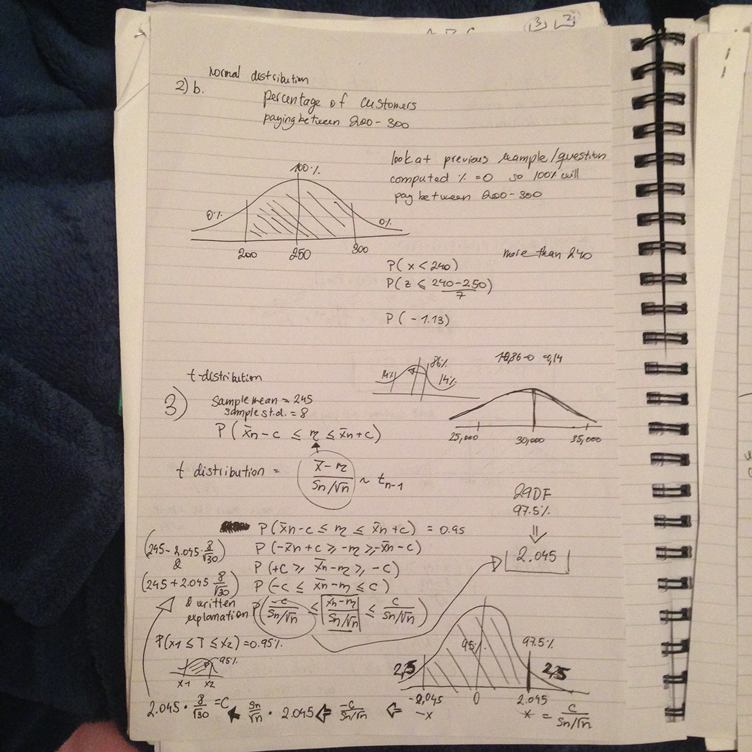 Normal distribution
2) b.
percentage of customers
paying between 200-300
look at previous example/question
computed % = 0 so 100% will
pay between 200-300
100%
0%
0%
200 250 300
more than 240
P( x < 240)
P( z ≤ 240-250)
7
P( -1.13)
86%
14%
14%
t-distribution
3)
Sample mean = 245
sample st.d. = 8
P( x̄n-c ≤ m ≤ x̄n+c)
25,000 30,000 35,000
t distribution = x̄-m
Sn/√n
~ tn-1
29DF
97.5%
⇓
2.045
P(x̄n-c ≤ m ≤ x̄n+c) = 0.95
(245-2.045 8/√30)
P(-x̄n+c ≥ -m ≥ -x̄n-c)
&
P(+c ≥ x̄n-m ≥ -c)
(245+2.045 8/√30)
P(-c ≤ x̄n-m ≤ c)
& written
explanation
P(-c/Sn/√n ≤ x̄n-m/Sn/√n ≤ c/Sn/√n)
P(x1 ≤ T ≤ x2) = 0.95%
95%
x1 x2
95%
97.5%
2,5
2,5
-2,045 0 2.045
-x * = c/Sn/√n
2.045 · 8/√30 = C ⇐ Sn/√n · 2.045 ⇐ -c/Sn/√n ⇐